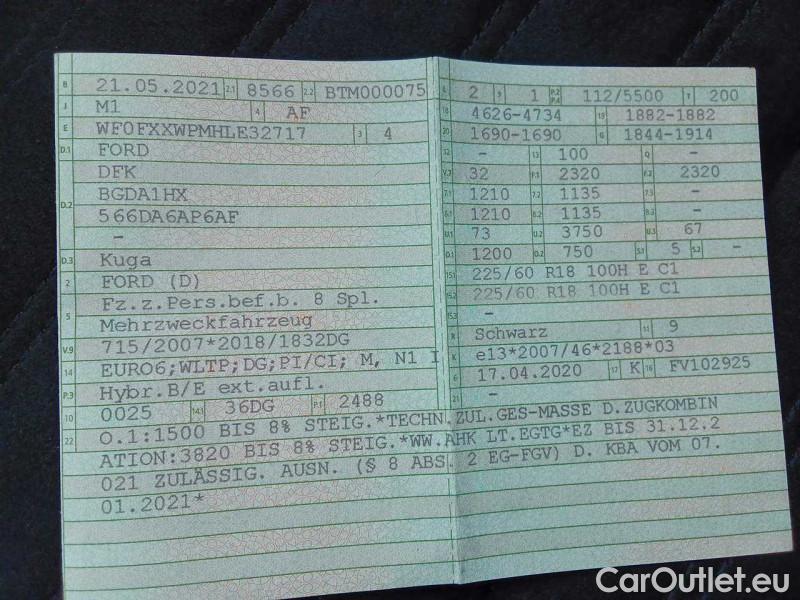 B 21.05.2021 2.1 8566 2.2 BTM000075
J M1 4 AF
E WF0FXXWPMHLE32717 3 4
D.1 FORD
DFK
D.2 BGDA1HX
566DA6AP6AF
-
D.3 Kuga
2 FORD (D)
5 Fz.z.Pers.bef.b. 8 Spl.
Mehrzweckfahrzeug
V.9 715/2007*2018/1832DG
14 EURO6;WLTP;DG;PI/CI; M, N1 I
P.3 Hybr.B/E ext.aufl.
10 0025 14.1 36DG P.1 2488
L 2 9 1 P.2 P.4 112/5500 T 200
18 4626-4734 19 1882-1882
20 1690-1690 G 1844-1914
12 - 13 100 Q -
V.7 32 F.1 2320 F.2 2320
7.1 1210 7.2 1135 7.3 -
8.1 1210 8.2 1135 8.3 -
U.1 73 U.2 3750 U.3 67
O.1 1200 O.2 750 S.1 5 S.2 -
15.1 225/60 R18 100H E C1
15.2 225/60 R18 100H E C1
15.3 -
R Schwarz 11 9
K e13*2007/46*2188*03
6 17.04.2020 17 K 16 FV102925
21 -
22 O.1:1500 BIS 8% STEIG.*TECHN.ZUL.GES-MASSE D.ZUGKOMBIN
ATION:3820 BIS 8% STEIG.*WW.AHK LT.EGTG*EZ BIS 31.12.2
021 ZULÄSSIG. AUSN. (§ 8 ABS. 2 EG-FGV) D. KBA VOM 07.
01.2021*
CarOutlet.eu